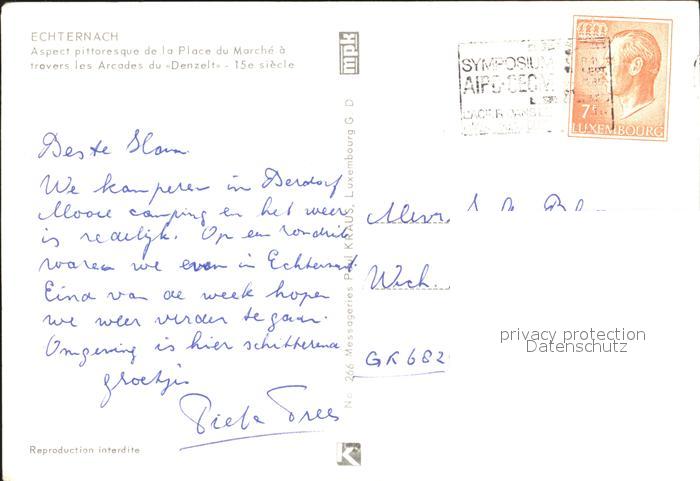 ECHTERNACH
Aspect pittoresque de la Place du Marché à
travers les Arcades du «Denzelt» - 15e siècle
mpk
SYMPOSIUM
7F
LUXEMBOURG
Beste
We kamperen in Berdorf
Mooie camping en het weer
is redelijk. Op een rondrit
waren we even in Echternach.
Eind van de week hopen
we weer verder te gaan.
Omgeving is hier schitterend
groetjes
Trees
Mevr.
privacy protection
Datenschutz
GR 682
No. 266 Messageries Paul KRAUS, Luxembourg G. D.
Reproduction interdite
K